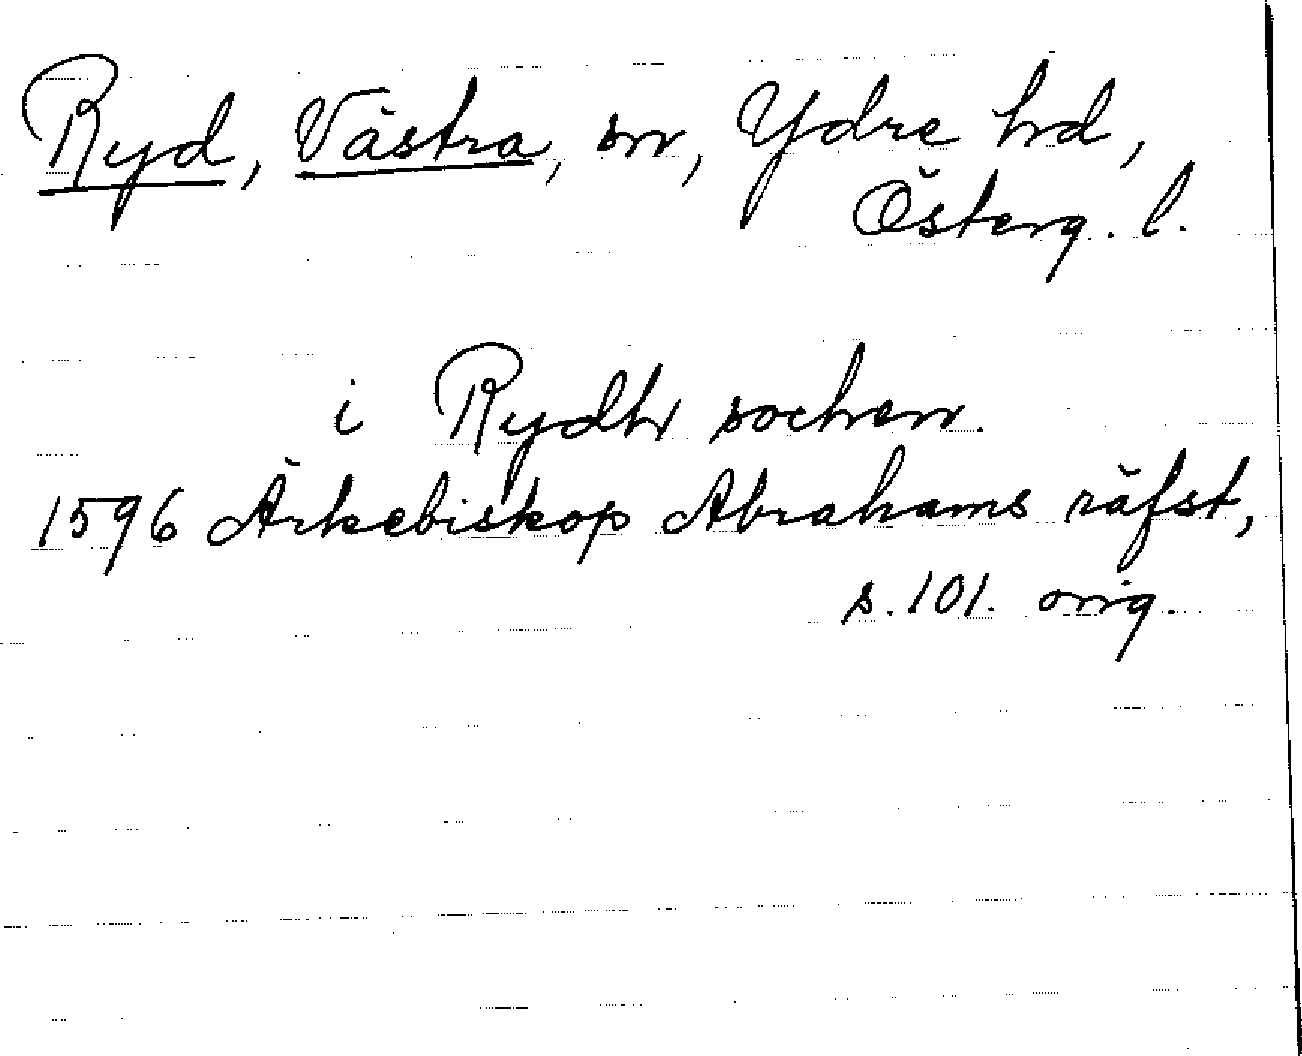 Ryd, Västra, sn, Ydre hd,
Österg. l.
i Rydh sochen.
1596 Ärkebiskop Abrahams räfst,
s. 101. orig.